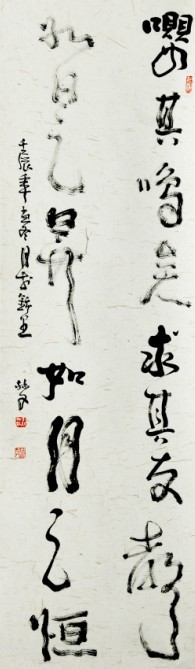 嚶其鳴矣求其友聲
如日之昇如月之恒
壬辰年孟冬月於